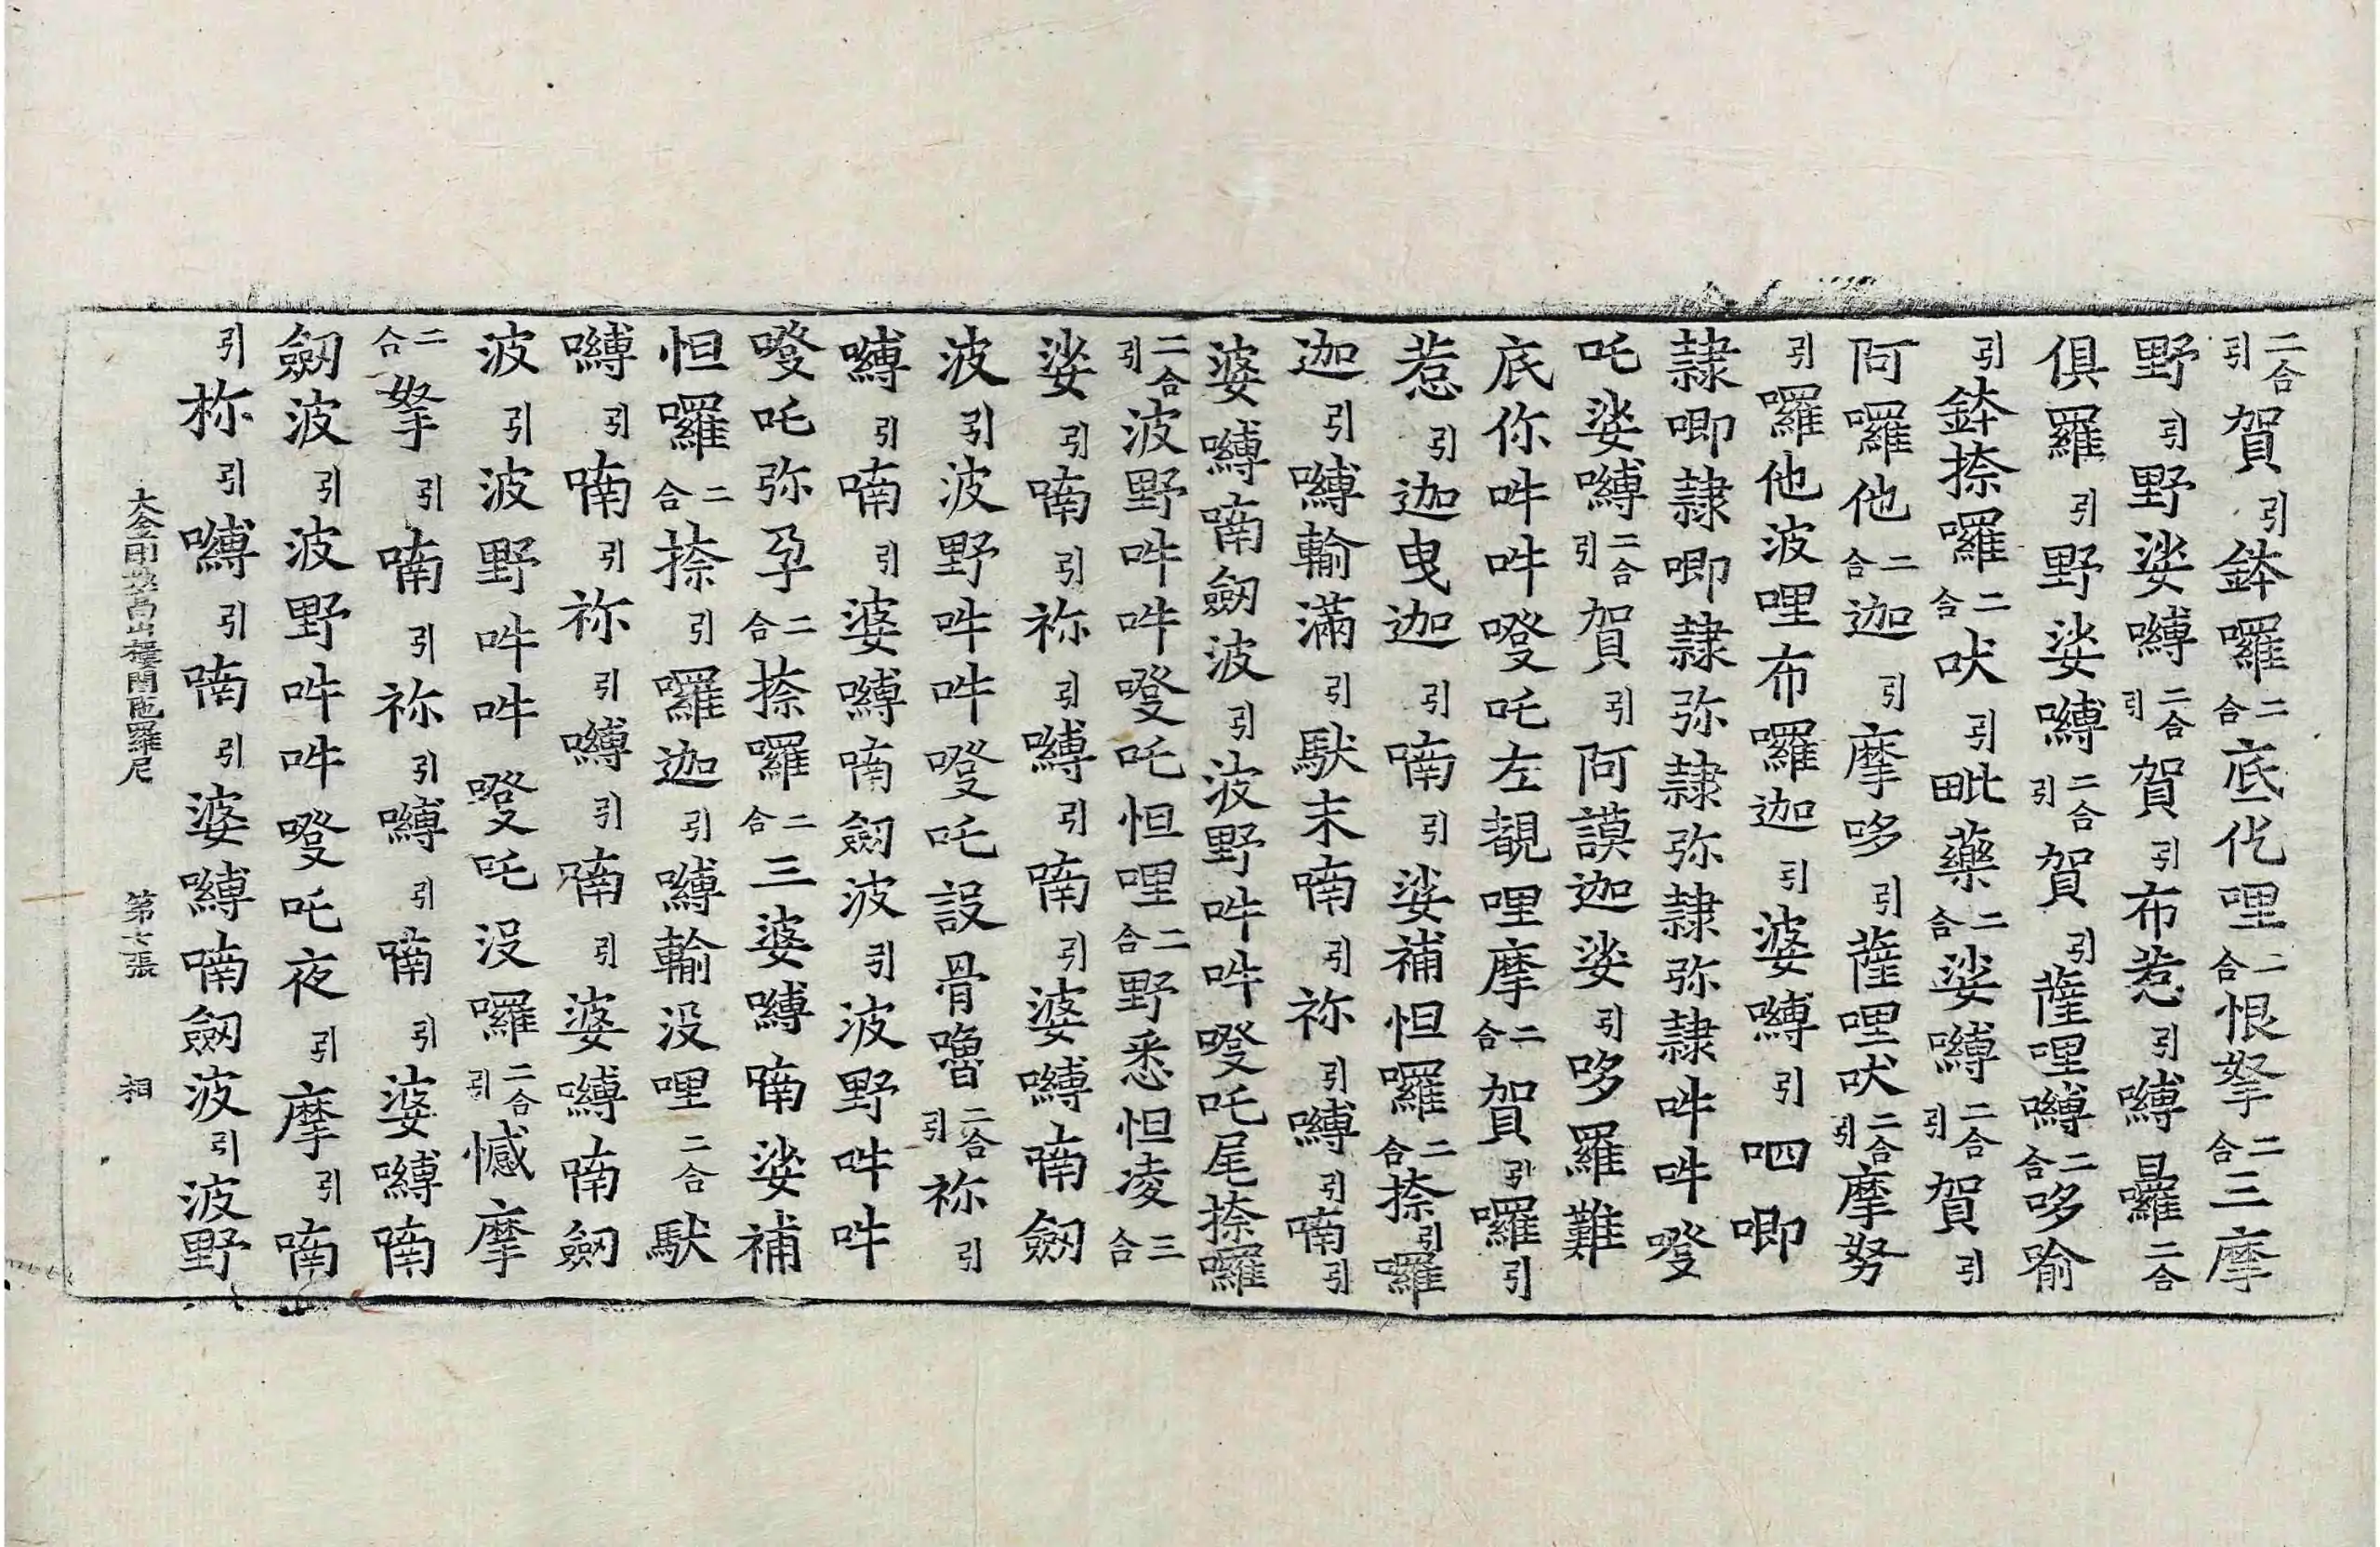 二合引賀引鉢囉二合底仡哩二合恨拏二合三摩
野引野娑嚩二合引賀引布惹引嚩囉二合
俱羅引野娑嚩二合引賀引薩哩嚩二合哆喻
引鉢捺囉二合吠引毗藥二合娑嚩二合引賀引
阿囉他二合迦引摩哆引薩哩吠二合引摩努
引囉他波哩布囉迦引婆嚩引呬唧
隷唧隷唧隷弥隷弥隷弥隷吽吽𭋲
吒娑嚩二合引賀引阿謨迦娑引哆羅難
底你吽吽𭋲吒左覩哩摩二合賀引囉引
惹引迦曳迦引喃引娑補怛囉二合捺引囉
迦引嚩輸滿引馱末喃引祢引嚩引喃引
婆嚩喃劒波引波野吽吽𭋲吒尾捺囉
二合引波野吽吽𭋲吒怛哩二合野悉怛凌三合
娑引喃引祢引嚩引喃引婆嚩喃劒
波引波野吽吽𭋲吒設骨嚕二合引祢引
嚩引喃引婆嚩喃劒波引波野吽吽
𭋲吒弥孕二合捺囉二合三婆嚩喃娑補
怛囉二合捺引囉迦引嚩輸没哩二合馱
嚩引喃引祢引嚩引喃引婆嚩喃劒
波引波野吽吽𭋲吒没囉二合引憾摩
二合拏引喃引祢引嚩引喃引婆嚩喃
劒波引波野吽吽𭋲吒夜引摩引喃
引祢引嚩引喃引婆嚩喃劒波引波野
大金剛妙高山樓閣陁羅尼 第七張 祠